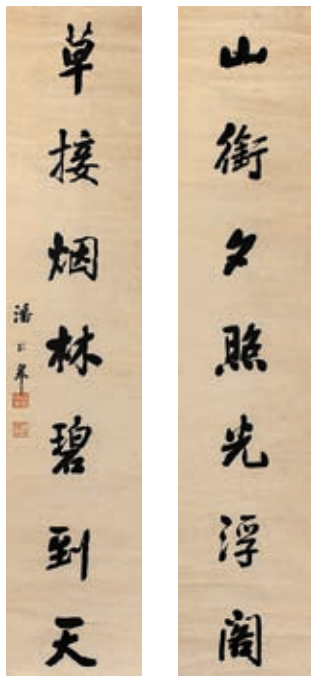 山銜夕照光浮閣
草接烟林碧到天
潘